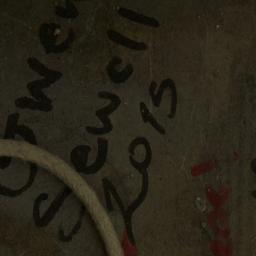 Owen
Sewell
2015